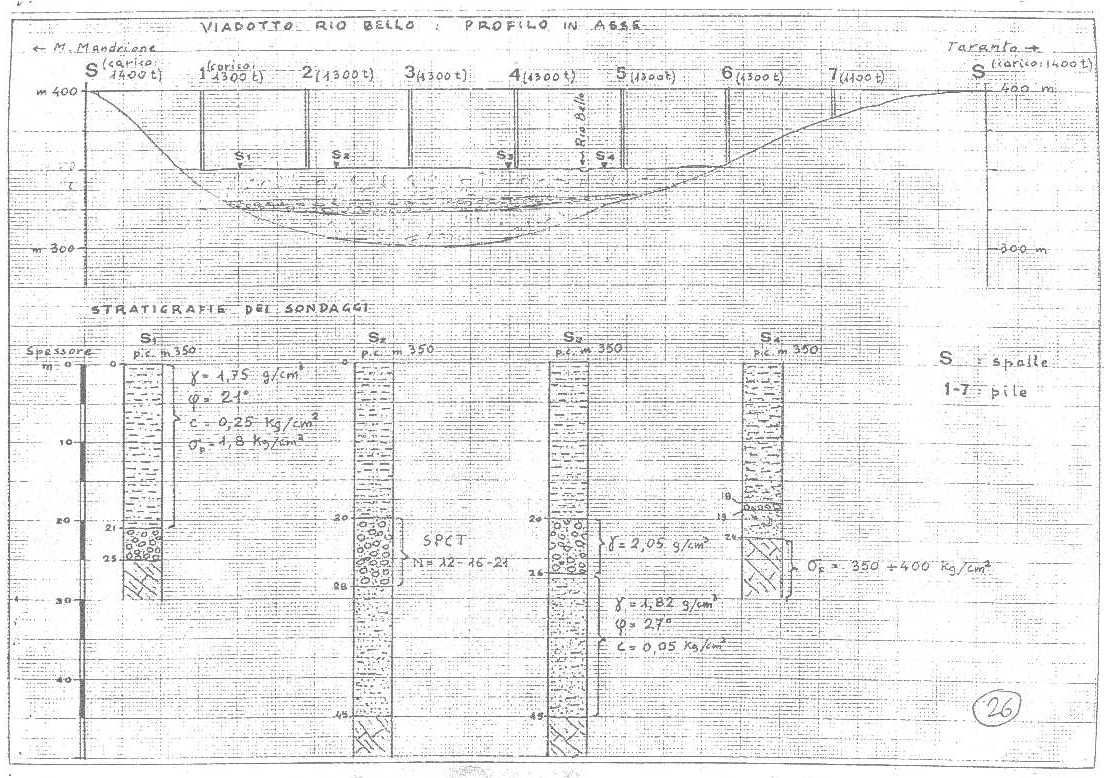 VIADOTTO RIO BELLO : PROFILO IN ASSE
← M. Mandrione
Taranto →
S (carico: 1400 t) 1 (carico: 1300 t) 2 (1300 t) 3 (1300 t) 4 (1300 t) 5 (1300 t) 6 (1300 t) 7 (1100 t) S (carico: 1400 t)
m 400
400 m
← Rio Bello
S1 S2 S3 S4
m 300
300 m
STRATIGRAFIE DEI SONDAGGI
S1 S2 S3 S4
Spessore
p.c. m 350 p.c. m 350 p.c. m 350 p.c. m 350
m 0
0
0
S : spalle
1-7 : pile
γ = 1,75 g/cm³
φ = 21°
c = 0,25 Kg/cm²
σp = 1,8 Kg/cm²
10
20
21
25
30
40
20
28
45
SPCT
N = 12-16-21
20
26
45
γ = 2,05 g/cm³
γ = 1,82 g/cm³
φ = 27°
c = 0,05 Kg/cm²
18
19
350 ÷ 400 Kg/cm²
26